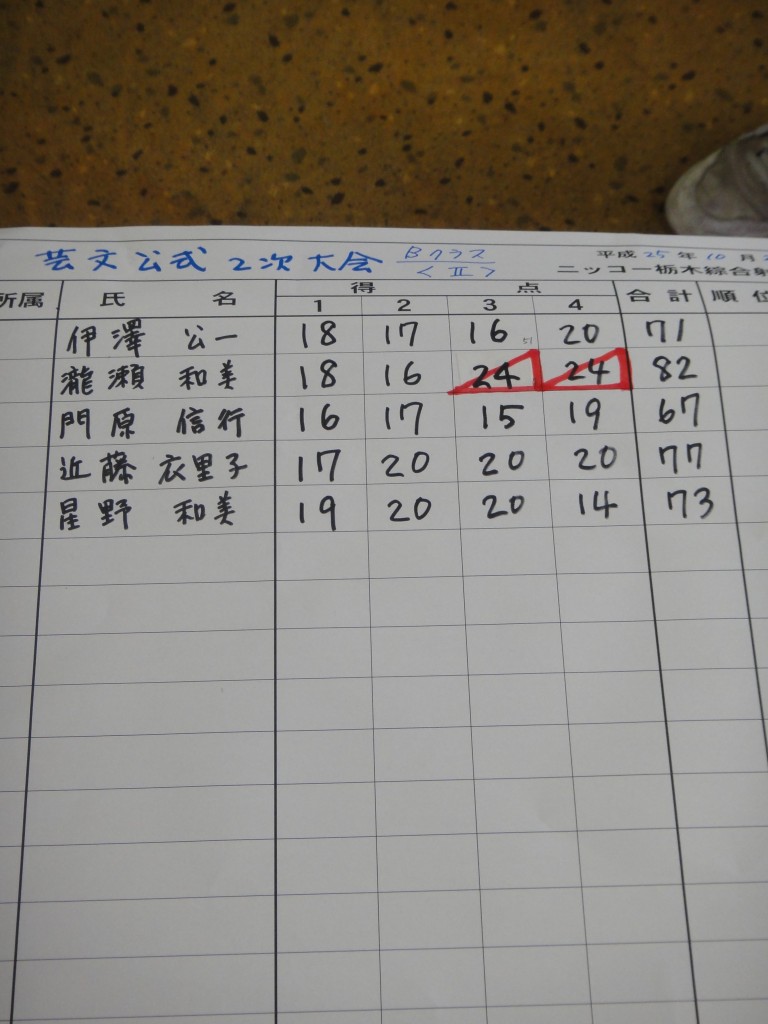 芸文公式 2次大会 Bクラス <Ⅱ> 平成 25 年 10 月
ニッコー栃木綜合射
所属 氏 名 得 点 合計 順位
1 2 3 4
伊澤 公一 18 17 16 20 71
瀧瀬 和美 18 16 24 24 82
門原 信行 16 17 15 19 67
近藤 衣里子 17 20 20 20 77
星野 和美 19 20 20 14 73